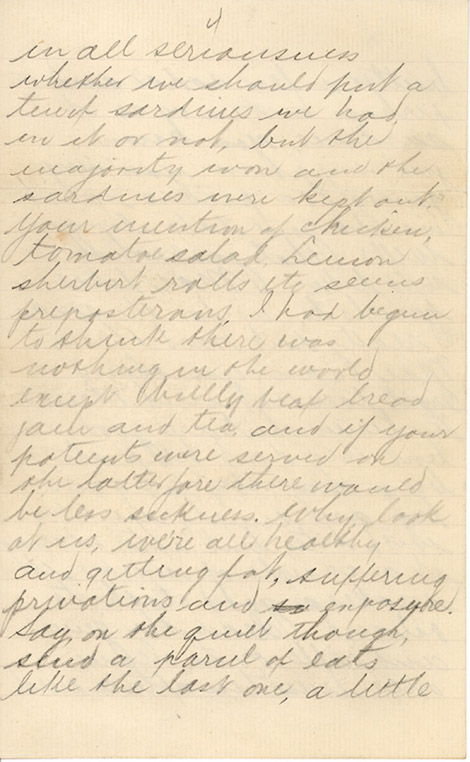 4
in all seriousness
whether we should put a
tin of sardines we had
in it or not, but the
majority won and the
sardines were kept out.
Your mention of chicken,
tomatoe salad. Lemon
sherbirt rolls etc seems
preposterous, I had begun
to think there was
nothing in the world
except bully beef bread
jam and tea, and if your
patients were served on
the latter fare there would
be less sickness. Why, look
at us, we're all healthy
and getting fat, suffering
privations and so exposure.
Say, on the quiet though,
send a parcel of eats
like the last one, a little